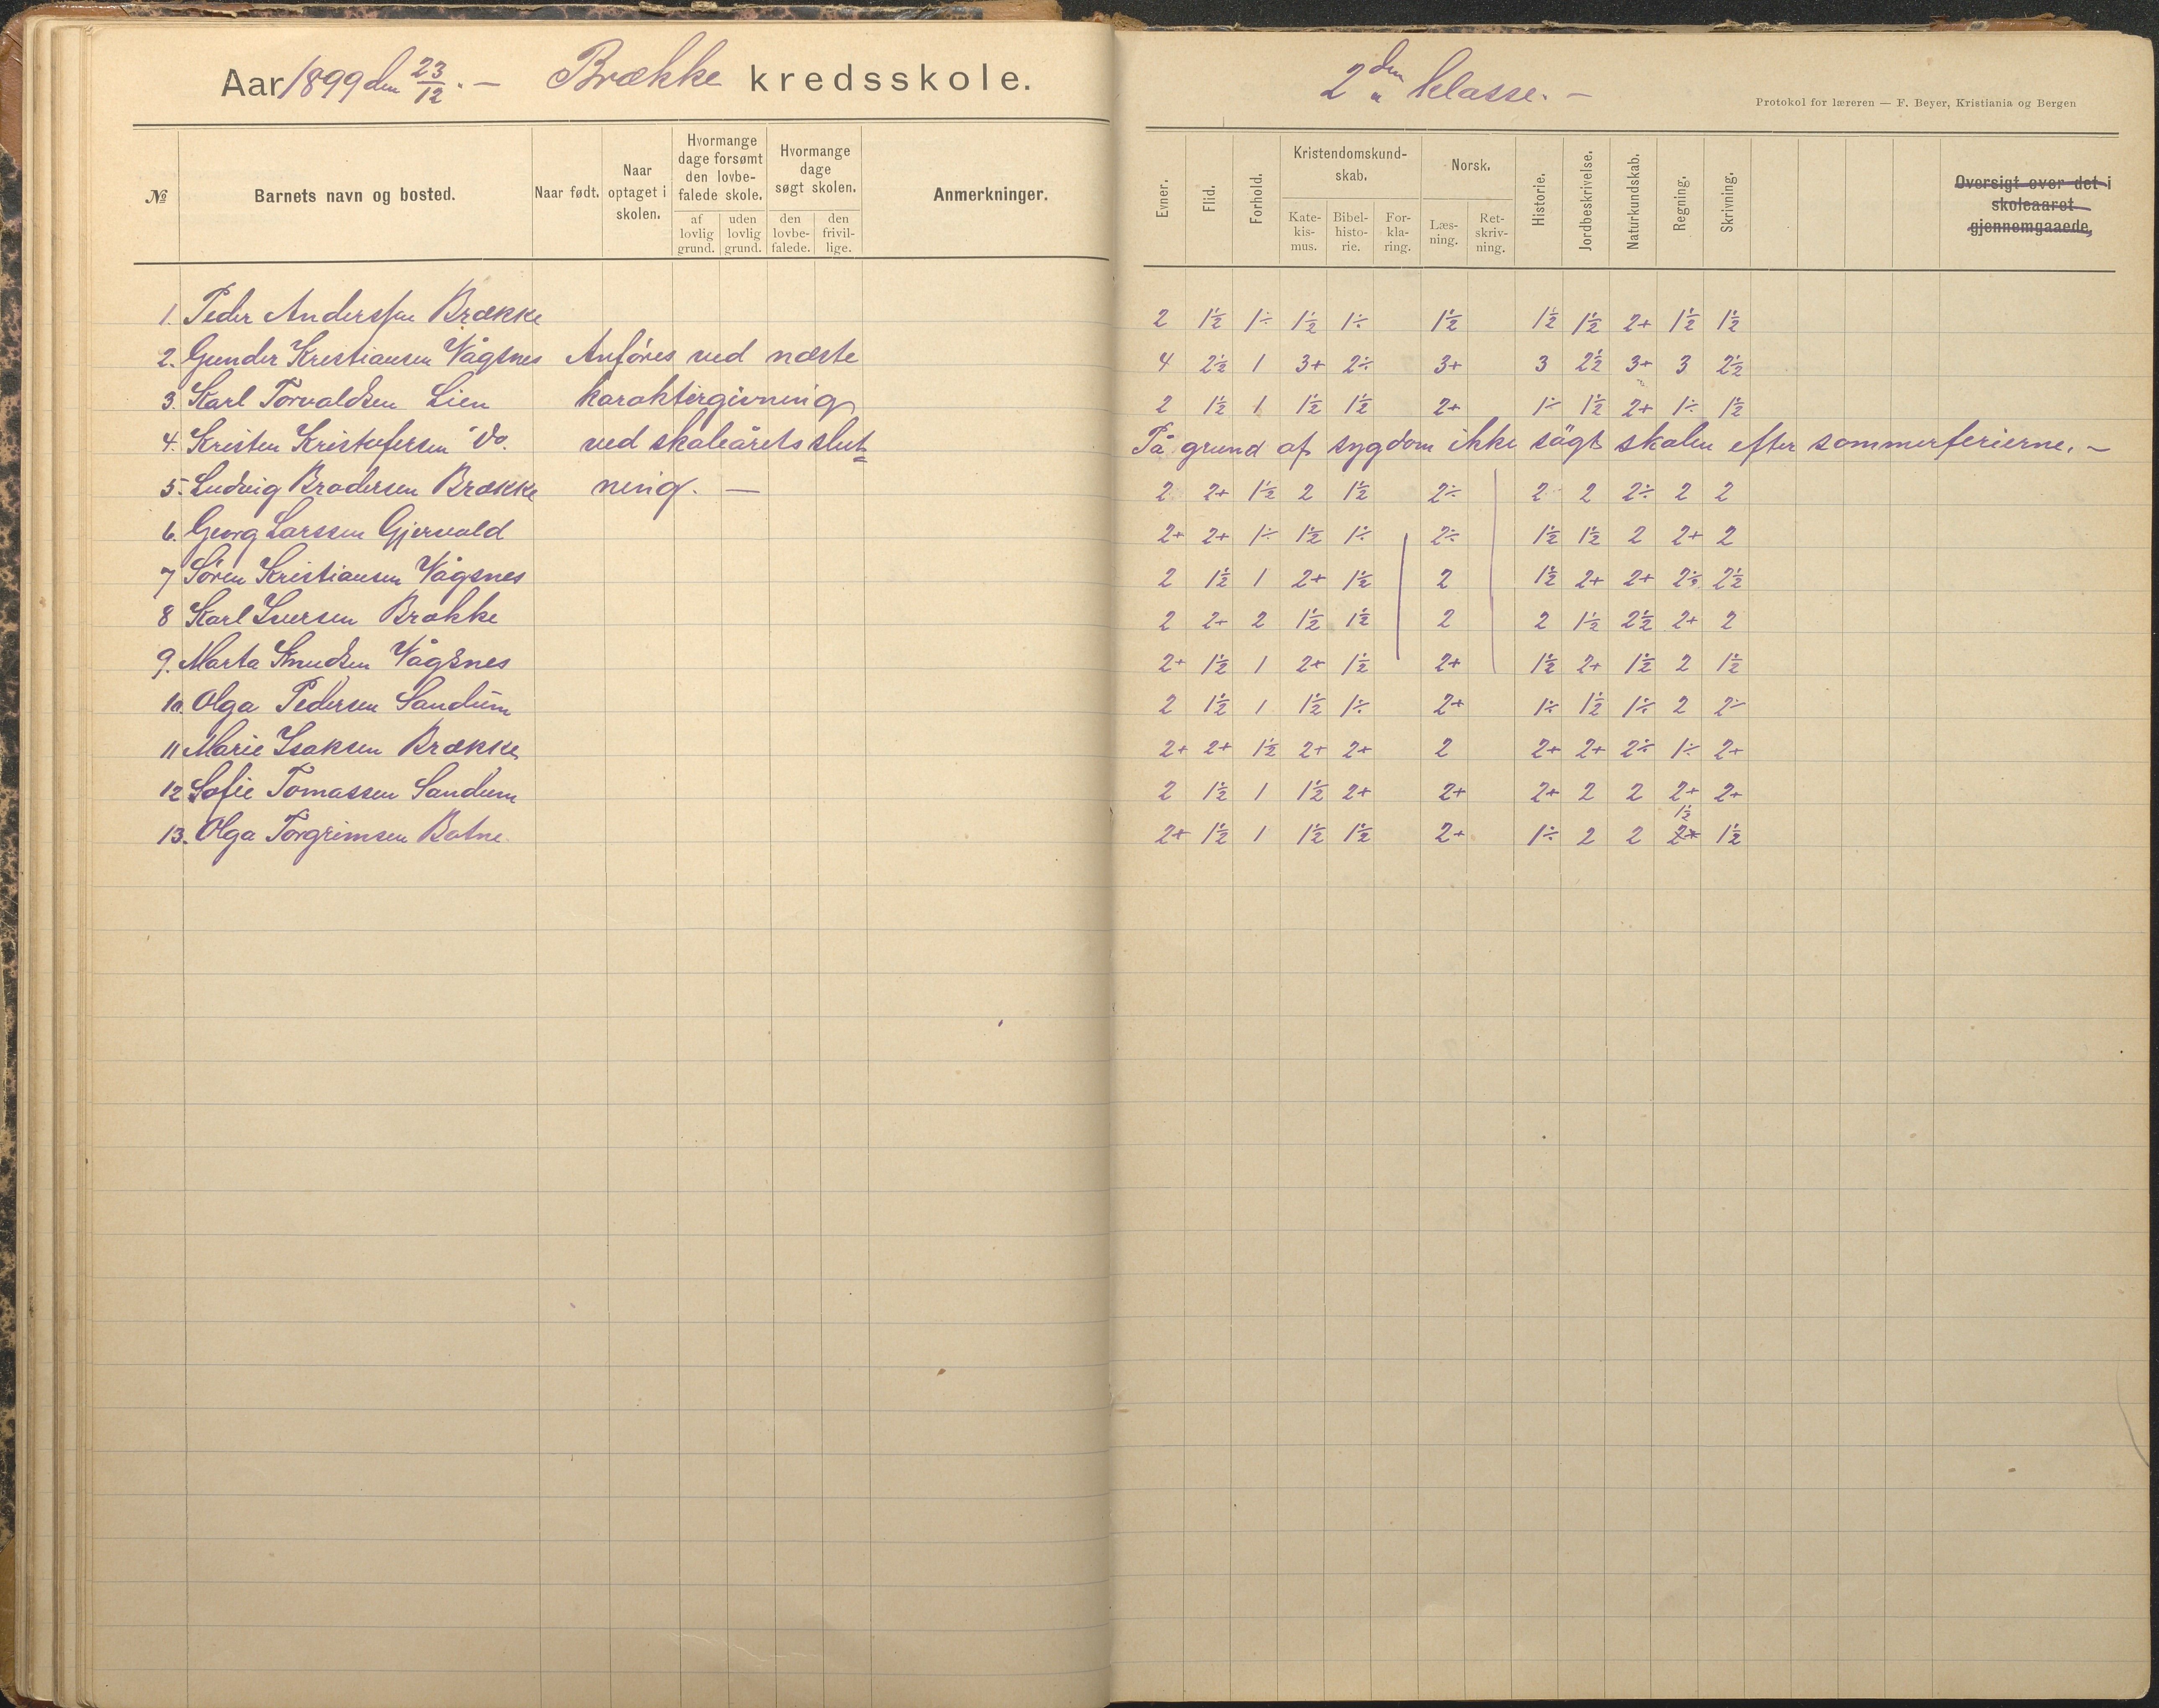 Aar 1899 den 23/12. — Brække kredsskole.
№ Barnets navn og bosted. Naar født. Naar optaget i skolen. Hvormange dage forsømt den lovbefalede skole. af lovlig grund. uden lovlig grund. Hvormange dage søgt skolen. den lovbefalede. den frivillige. Anmerkninger.
1. Peder Anderssen Brække
2. Gunder Kristiansen Vågsnes Anføres ved næste
3. Karl Torvaldsen Lien karaktergivning
4. Kristen Kristofersen Do. ved skoleårets slut=
5. Ludvig Brodersen Brække ning. —
6. Georg Larssen Gjervold
7 Søren Kristiansen Vågsnes
8 Karl Iversen Brække
9. Marta Knudsen Vågsnes
10. Olga Pedersen Sandum
11 Marie Isaksen Brække
12 Sofie Tomassen Sandum
13. Olga Torgrimsen Botne.
2den klasse. —
Protokol for læreren — F. Beyer, Kristiania og Bergen
Evner. Flid. Forhold. Kristendomskundskab. Katekismus. Bibelhistorie. Forklaring. Norsk. Læsning. Retskrivning. Historie. Jordbeskrivelse. Naturkundskab. Regning. Skrivning. Oversigt over det i skoleaaret gjennemgaaede,
2 1½ 1÷ 1½ 1÷ 1½ 1½ 1½ 2+ 1½ 1½
4 2½ 1 3+ 2÷ 3+ 3 2½ 3+ 3 2½
2 1½ 1 1½ 1½ 2+ 1÷ 1½ 2+ 1÷ 1½
På grund af sygdom ikke søgt skolen efter sommerferierne. —
2 2+ 1½ 2 1½ 2÷ 2 2 2÷ 2 2
2+ 2+ 1÷ 1½ 1÷ 2÷ 1½ 1½ 2 2+ 2
2 1½ 1 2+ 1½ 2 1½ 2+ 2+ 2÷ 2½
2 2+ 2 1½ 1½ 2 2 1½ 2½ 2+ 2
2+ 1½ 1 2+ 1½ 2+ 1½ 2+ 1½ 2 1½
2 1½ 1 1½ 1÷ 2+ 1÷ 1½ 1÷ 2 2÷
2+ 2+ 1½ 2+ 2+ 2 2+ 2+ 2÷ 1÷ 2+
2 1½ 1 1½ 2+ 2+ 2+ 2 2 2+ 2+
1½
2+ 1½ 1 1½ 1½ 2+ 1÷ 2 2 2+ 1½